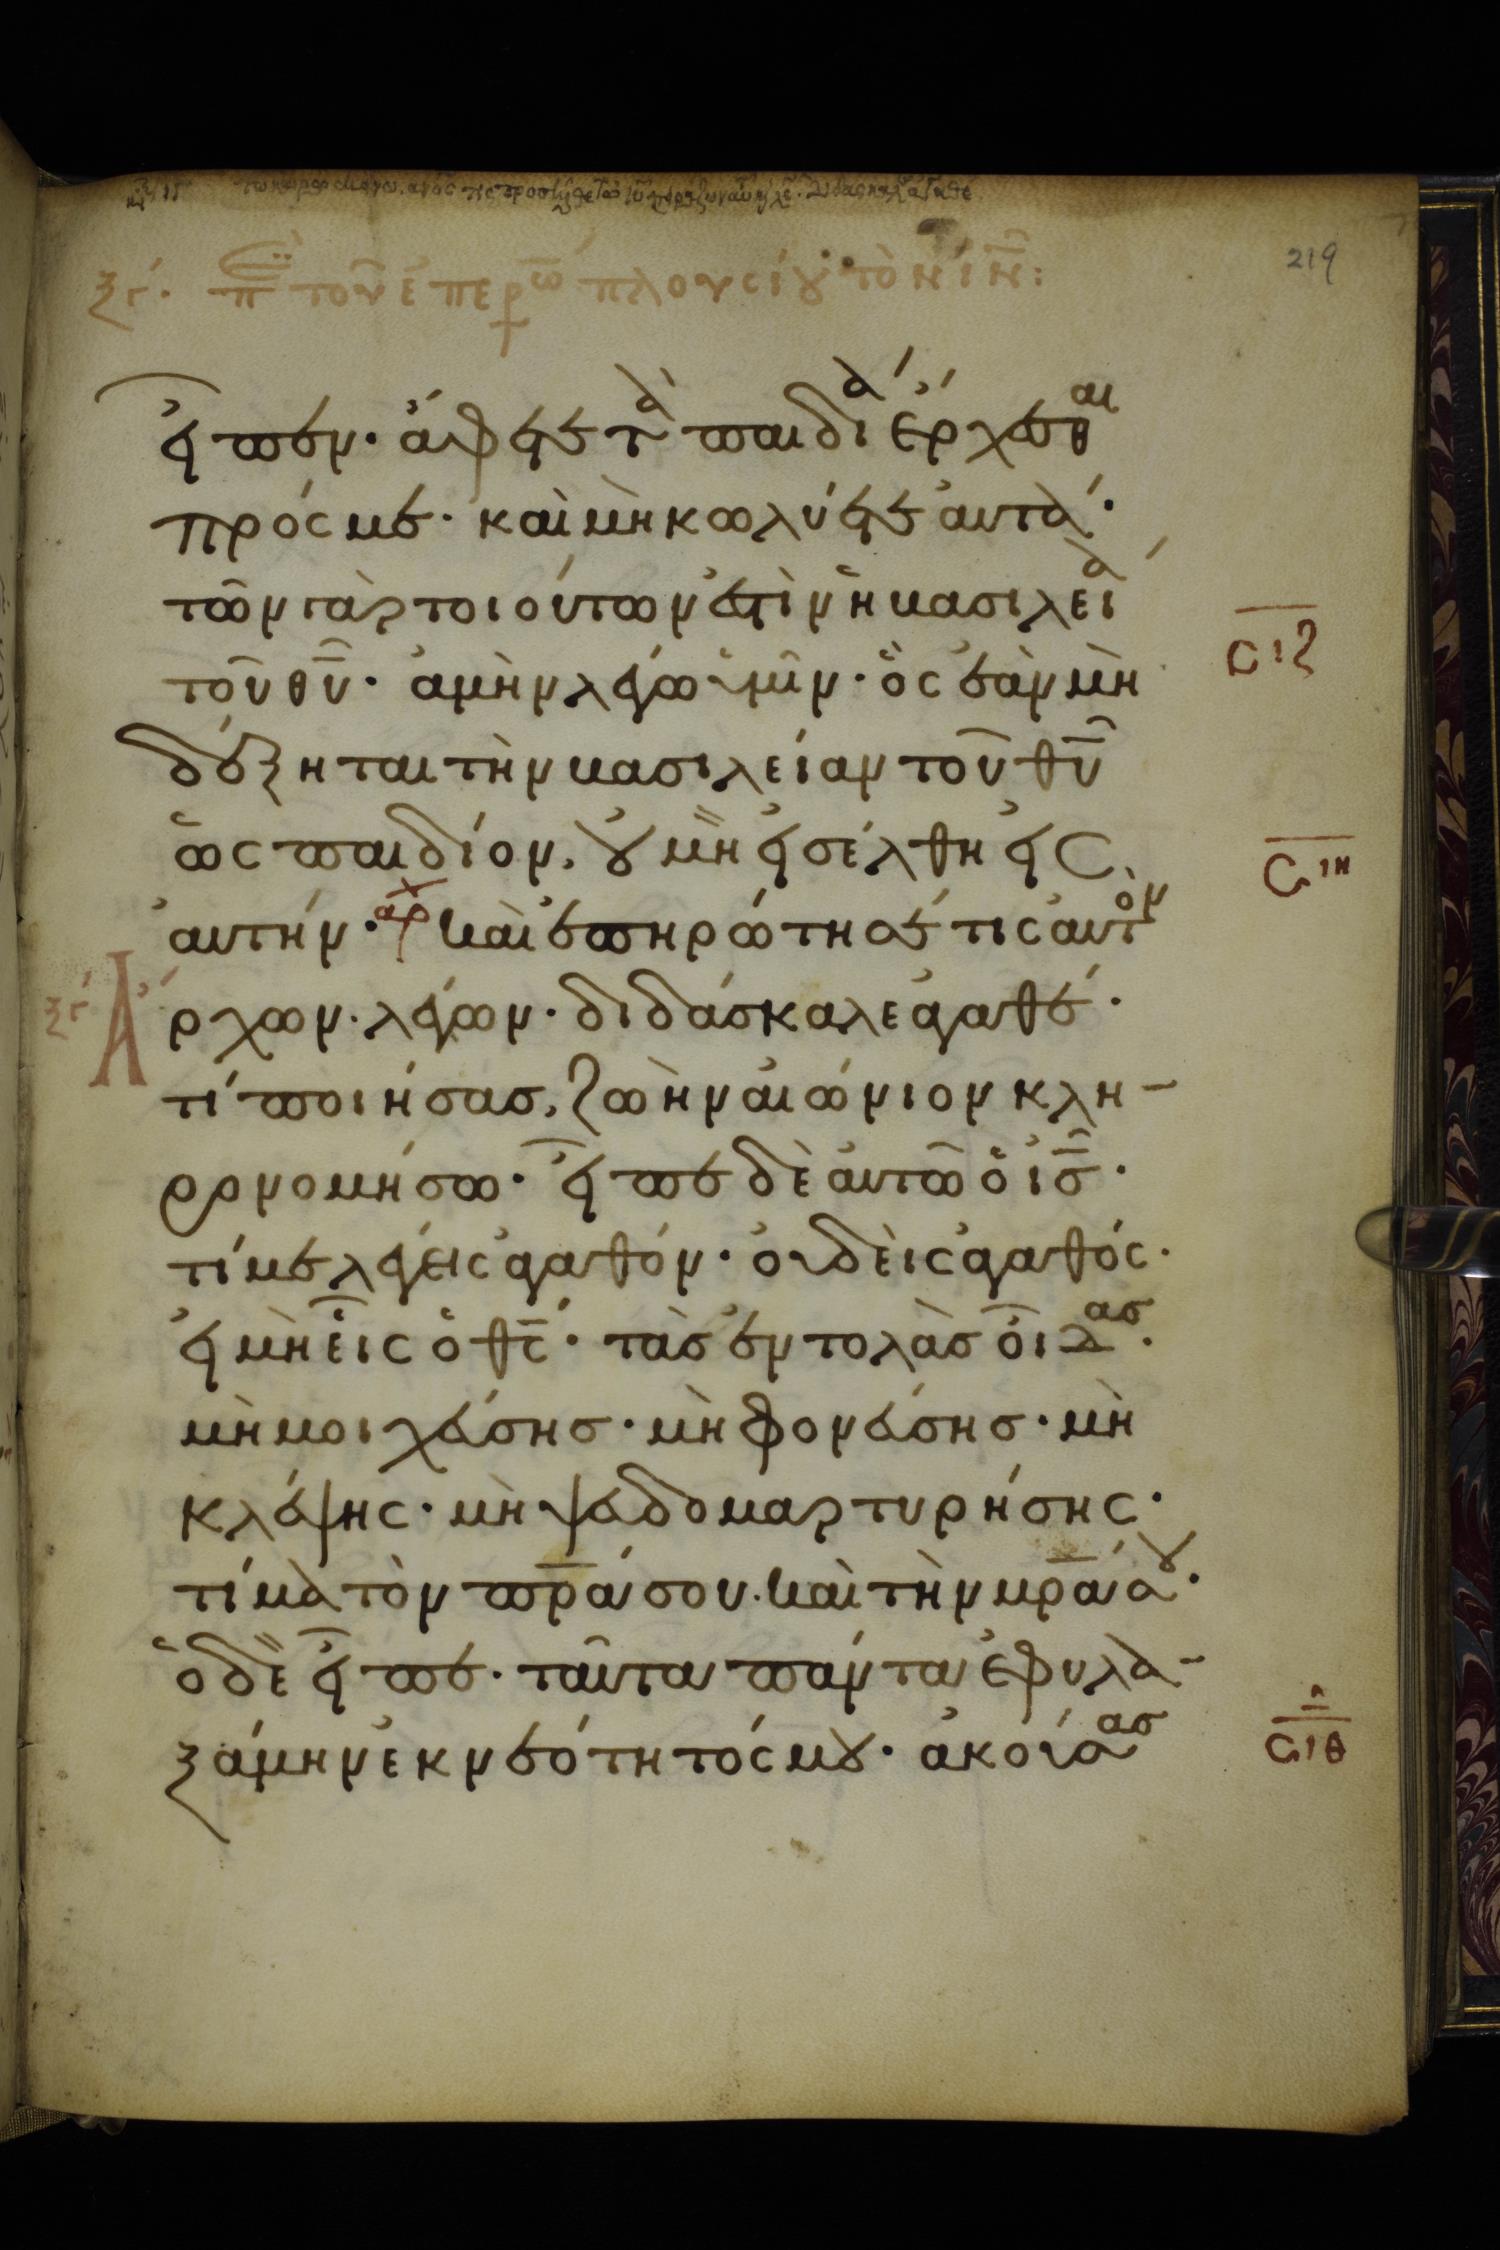 219
ξγ· περὶ τοῦ ἐπερω πλουσίου τὸν ιν:
εἶπεν· ἄφετε τὰ παιδία ἔρχεσθαι
πρός με· καὶ μὴ κωλύετε αὐτά·
τῶν γὰρ τοιούτων ἐστὶν ἡ βασιλεία
τοῦ θυ· ἀμὴν λέγω ὑμῖν· ὃς ἐὰν μὴ
σιζ
δέξηται τὴν βασιλείαν τοῦ θυ
ὡς παιδίον, οὐ μὴ εἰσέλθη εἰς
σιη
αὐτήν· αρχ καὶ ἐπηρώτησέ τις αὐτὸν
ξγ Ἄρχων λέγων· διδάσκαλε ἀγαθέ·
τί ποιήσας, ζωὴν αἰώνιον κλη-
ρονομήσω· εἶπε δὲ αὐτῶ ὁ ισ·
τί με λέγεις ἀγαθόν· οὐδεὶς ἀγαθός·
εἰ μὴ εἷς ὁ θς· τὰς ἐντολὰς οἶδας·
μὴ μοιχεύσης· μὴ φονεύσης· μὴ
κλέψης· μὴ ψευδομαρτυρήσης·
τίμα τὸν πρα σου· καὶ τὴν μρα σου·
ὁ δὲ εἶπε· ταῦτα πάντα ἐφυλα-
ξάμην ἐκ νεότητός μου· ἀκούσας
σιθ